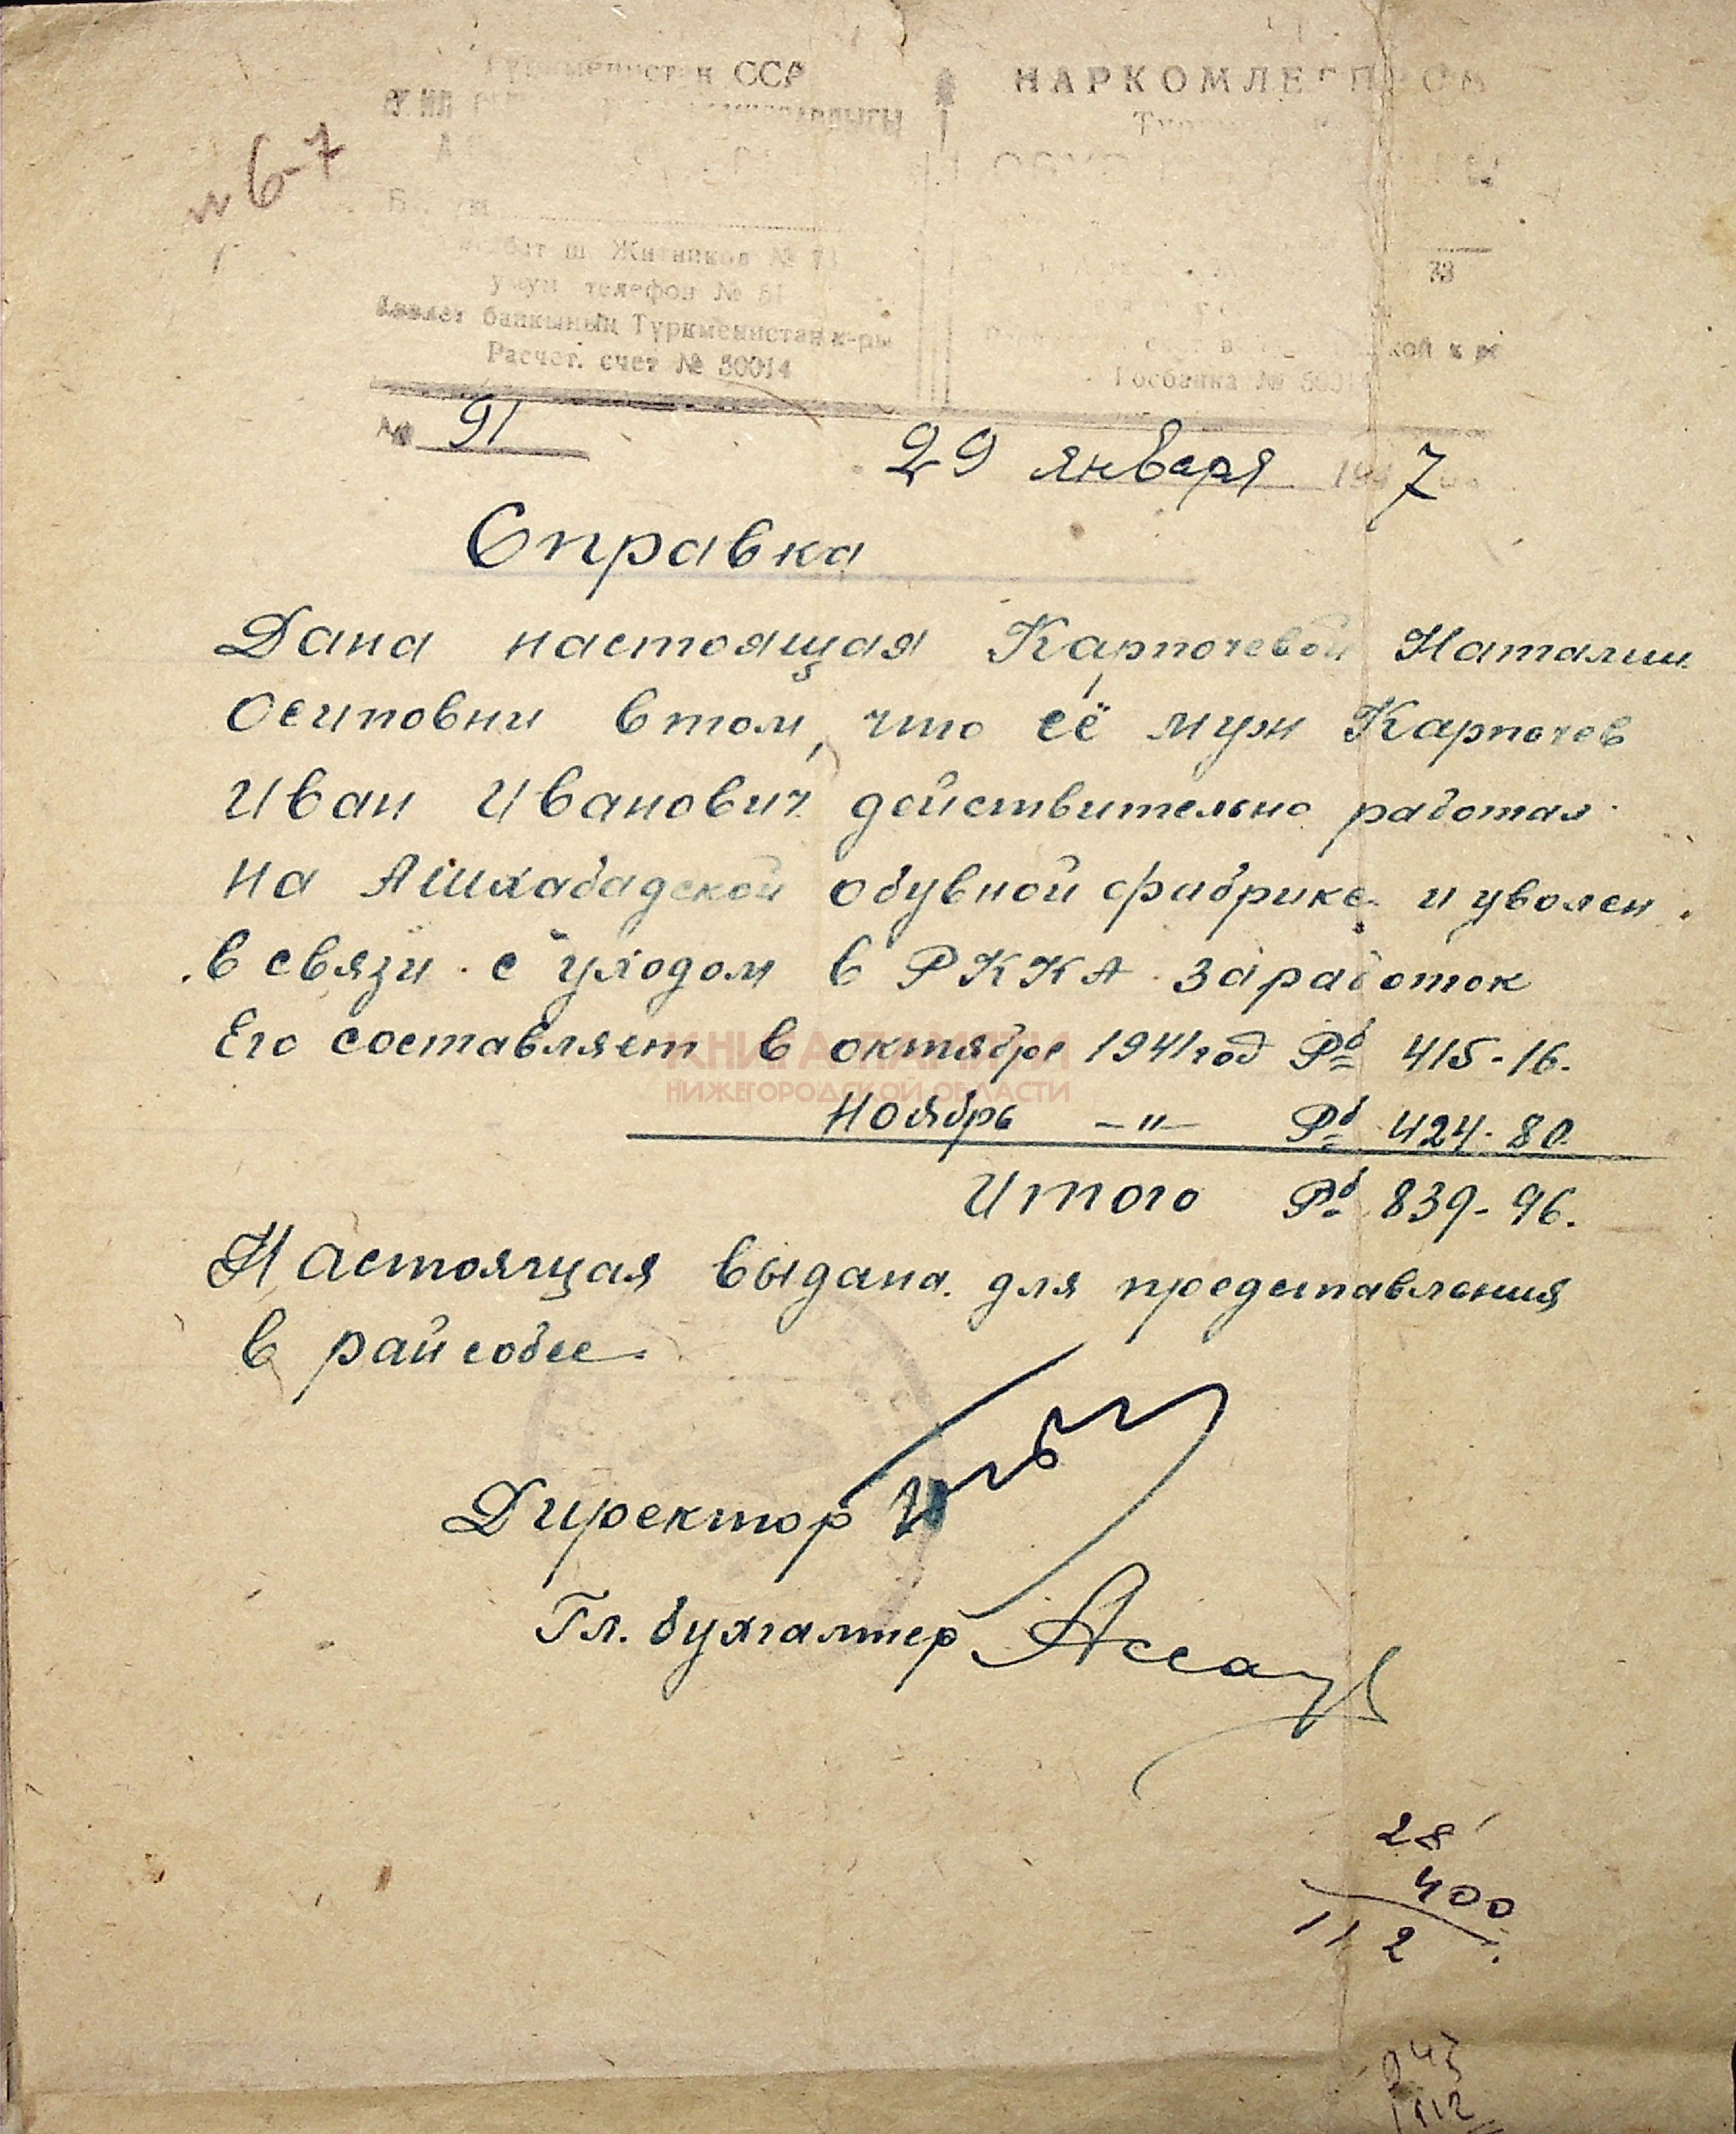 ССР
НАРКОМЛЕ
Житников №
телефон №
банкының Туркменистан к-ры
Расчет. счет № 50014
73
Госбанка №
№ 91
29 января 194 7
Справка
Дана настоящая Карпочевой Наталии
Осиповни в том, что её муж Карпочев
Иван Иванович действительно работал
на Ашхабадской обувной фабрике и уволен
в связи с уходом в РККА заработок
Его составляет в октябре 1941 год Рб 415-16.
Ноябрь -"- Рб 424-80
Итого Рб 839-96.
Настоящая выдана для представления
в райсобес.
Директор
Гл. бухгалтер
КНИГА ПАМЯТИ
НИЖЕГОРОДСКОЙ ОБЛАСТИ
28
400
112